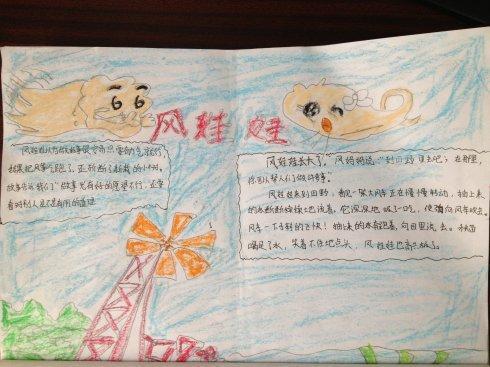 风娃娃
风娃娃以为做好事很容易只要有力气就行,
结果把风筝吹跑了,还折断了新栽的小树。
故事告诉我们"做事光有好的愿望不行,还要
看对别人是不是有用的道理
风娃娃长大了。风妈妈说:"到田野里去吧,在那里,
你可以帮人们做好事。
风娃娃来到田野,看见一架大风车正在慢慢转动,抽上来
的水断断续续地流着,它深深地吸了一口气,使劲向风车吹去。
风车一下子转的飞快!抽上来的水奔跑着,向田里流去。秧苗
喝足了水,笑着不住地点头,风娃娃也高兴极了。